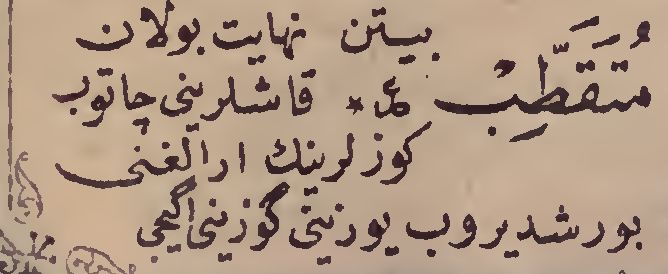 بیتن نهایت بولان
مُتَقَطِّبٌ ع* قاشلرینی چاتوب
کوزلرینك ارالغنی
بورشدیروب یوزینی گوزینی اگیجی